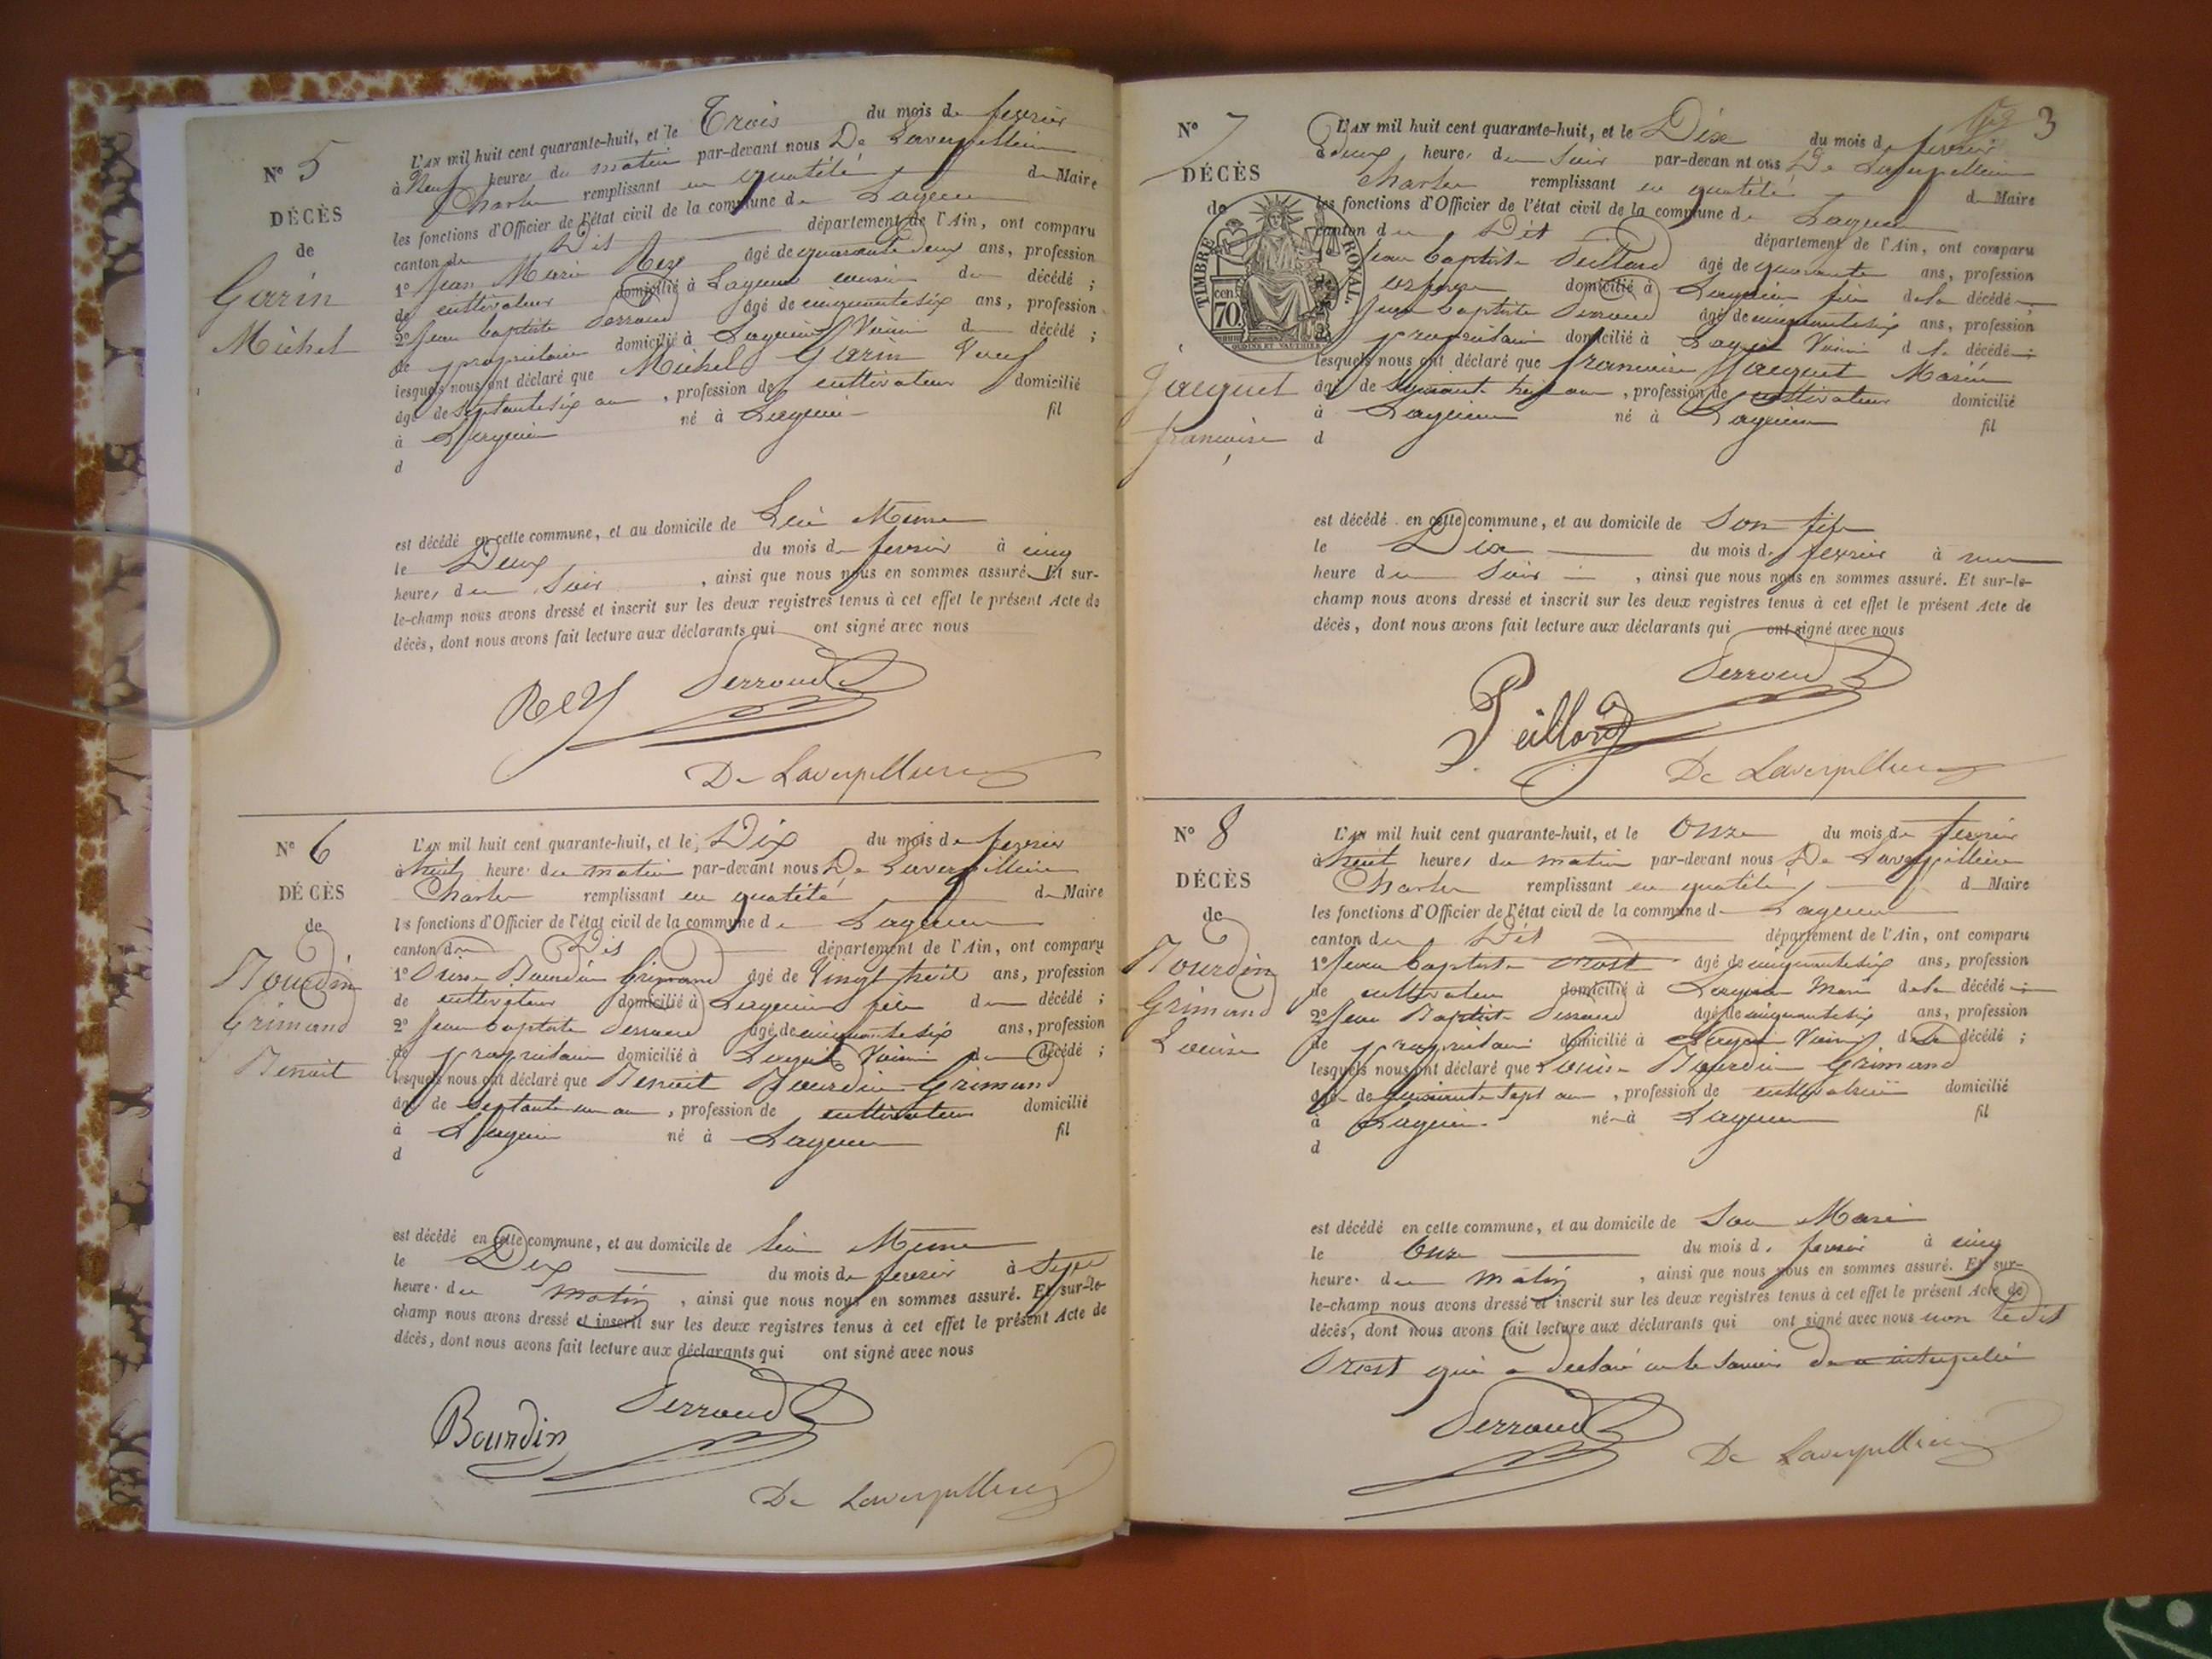 N° 5
DÉCÈS
de
Garin
Michel
L'AN mil huit cent quarante-huit, et le Trois du mois de fevrier
à Neuf heures du matin par-devant nous De Laverpilliere
Charles remplissant en qualité de Maire
les fonctions d'Officier de l'état civil de la commune de Lagnieu
canton du Dit département de l'Ain, ont comparu
1° Jean Marie Rey âgé de quarante deux ans, profession
de cultivateur domicilié à Lagnieu cousin du décédé ;
2° Jean Baptiste Perroud âgé de cinquante six ans, profession
de propriétaire domicilié à Lagnieu Voisin du décédé ;
lesquels nous ont déclaré que Michel Garin Veuf
âgé de septante six ans, profession de cultivateur domicilié
à Lagnieu né à Lagnieu fil
d
est décédé en cette commune, et au domicile de Lui Meme
le Deux du mois de fevrier à cinq
heures du Soir, ainsi que nous nous en sommes assuré. Et sur-
le-champ nous avons dressé et inscrit sur les deux registres tenus à cet effet le présent Acte de
décès, dont nous avons fait lecture aux déclarants qui ont signé avec nous
Rey Perroud
De Laverpilliere
N° 6
DÉCÈS
de
Bourdin
Grimaud
Benoit
L'AN mil huit cent quarante-huit, et le Dix du mois de fevrier
à huit heure du matin par-devant nous De Laverpilliere
Charles remplissant en qualité de Maire
les fonctions d'Officier de l'état civil de la commune de Lagnieu
canton du Dit département de l'Ain, ont comparu
1° Bourdin Grimaud âgé de Vingt huit ans, profession
de cultivateur domicilié à Lagnieu fils du décédé ;
2° Jean Baptiste Perroud âgé de cinquante six ans, profession
de propriétaire domicilié à Lagnieu Voisin du décédé ;
lesquels nous ont déclaré que Benoit Bourdin Grimaud
âgé de septante un ans, profession de cultivateur domicilié
à Lagnieu né à Lagnieu fil
d
est décédé en cette commune, et au domicile de lui Meme
le Dix du mois de fevrier à Sept
heure du matin, ainsi que nous nous en sommes assuré. Et sur-le-
champ nous avons dressé et inscrit sur les deux registres tenus à cet effet le présent Acte de
décès, dont nous avons fait lecture aux déclarants qui ont signé avec nous
Bourdin Perroud
De Laverpilliere
3
N° 7
DÉCÈS
de
TIMBRE ROYAL.
70 cen.
Jacquet
francoise
L'AN mil huit cent quarante-huit, et le Dix du mois de fevrier
à deux heures du Soir par-devan nt ous De Laverpilliere
Charles remplissant en qualité de Maire
les fonctions d'Officier de l'état civil de la commune de Lagnieu
canton du Dit département de l'Ain, ont comparu
Jean Baptiste Peillard âgé de quarante ans, profession
domicilié à Lagnieu fils de la décédé
Jean Baptiste Perroud âgé de cinquante six ans, profession
de propriétaire domicilié à Lagnieu Voisin de la décédé
lesquels nous ont déclaré que francoise Jacquet Mariée
âgé de ans, profession de cultivateur domicilié
à Lagnieu né à Lagnieu fil
d
est décédé en cette commune, et au domicile de Son fils
le Dix du mois de fevrier à une
heure du Soir, ainsi que nous nous en sommes assuré. Et sur-le-
champ nous avons dressé et inscrit sur les deux registres tenus à cet effet le présent Acte de
décès, dont nous avons fait lecture aux déclarants qui ont signé avec nous
Perroud
Peillard
De Laverpilliere
N° 8
DÉCÈS
de
Bourdin
Grimaud
Louise
L'AN mil huit cent quarante-huit, et le Onze du mois de fevrier
à huit heures du matin par-devant nous De Laverpilliere
Charles remplissant en qualité d Maire
les fonctions d'Officier de l'état civil de la commune de Lagnieu
canton du Dit département de l'Ain, ont comparu
1° Jean Baptiste Prost âgé de cinquante six ans, profession
de cultivateur domicilié à Lagnieu Mari de la décédé
2° Jean Baptiste Perroud âgé de cinquante six ans, profession
de propriétaire domicilié à Lagnieu Voisin de la décédé ;
lesquels nous ont déclaré que Louise Bourdin Grimaud
âgée de quarante sept ans, profession de cultivatrice domicilié
à Lagnieu née à Lagnieu fil
d
est décédé en cette commune, et au domicile de Son Mari
le Onze du mois d. fevrier à cinq
heure du Matin, ainsi que nous nous en sommes assuré. Et sur-
le-champ nous avons dressé et inscrit sur les deux registres tenus à cet effet le présent Acte de
décès, dont nous avons fait lecture aux déclarants qui ont signé avec nous non ledit
Prost qui a declaré ne le savoir de ce interpellé
Perroud
De Laverpilliere